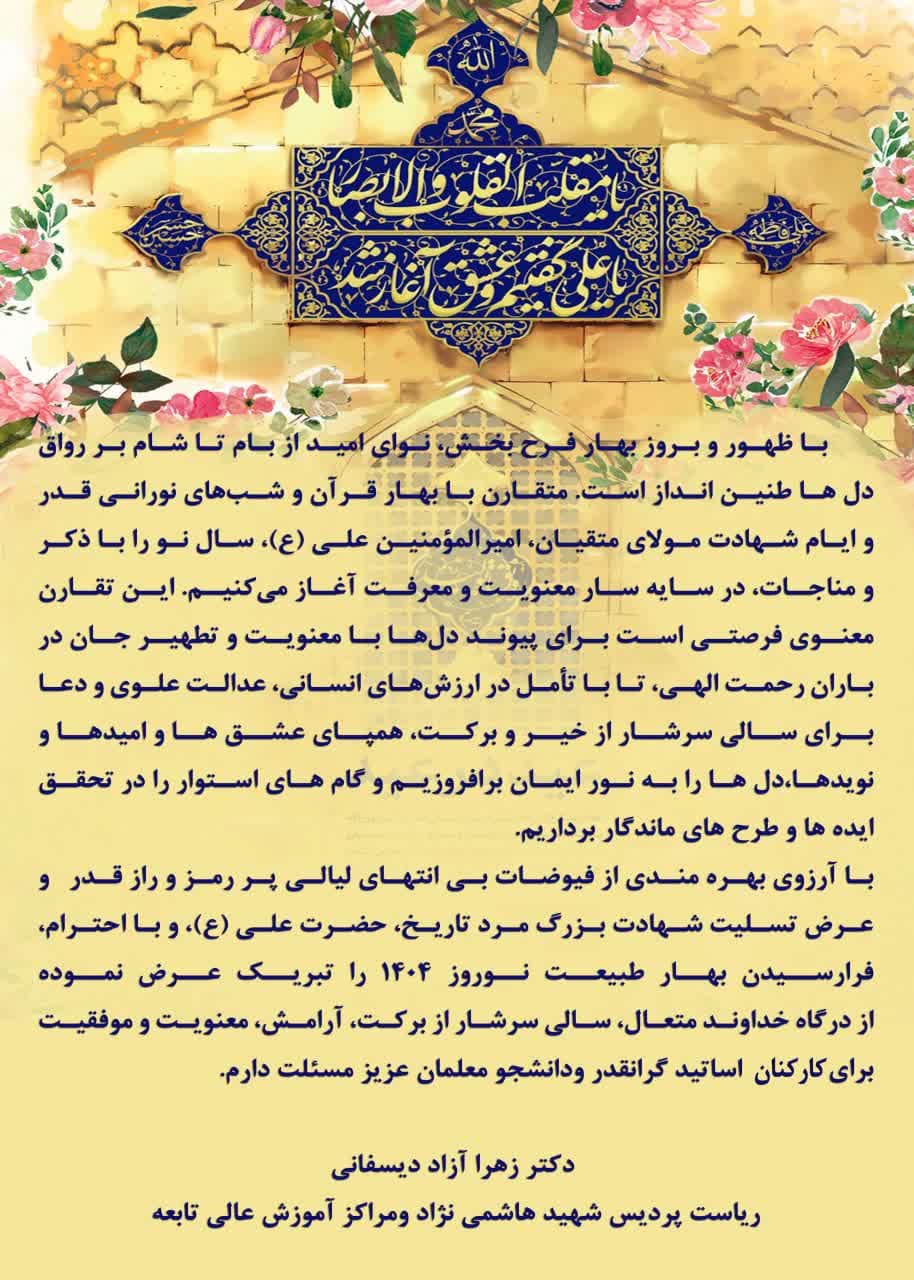 الله
محمد
یا مقلب القلوب والابصار
علی فاطمه
حسین
یا علی گفتیم و عشق آغاز شد
با ظهور و بروز بهار فرح بخش، نوای امید از بام تا شام بر رواق
دل ها طنین انداز است. متقارن با بهار قرآن و شب‌های نورانی قدر
و ایام شهادت مولای متقیان، امیرالمؤمنین علی (ع)، سال نو را با ذکر
و مناجات، در سایه سار معنویت و معرفت آغاز می‌کنیم. این تقارن
معنوی فرصتی است برای پیوند دل‌ها با معنویت و تطهیر جان در
باران رحمت الهی، تا با تأمل در ارزش‌های انسانی، عدالت علوی و دعا
برای سالی سرشار از خیر و برکت، همپای عشق ها و امیدها و
نویدها،دل ها را به نور ایمان برافروزیم و گام های استوار را در تحقق
ایده ها و طرح های ماندگار برداریم.
با آرزوی بهره مندی از فیوضات بی انتهای لیالی پر رمز و راز قدر و
عرض تسلیت شهادت بزرگ مرد تاریخ، حضرت علی (ع)، و با احترام،
فرارسیدن بهار طبیعت نوروز ۱۴۰۴ را تبریک عرض نموده
از درگاه خداوند متعال، سالی سرشار از برکت، آرامش، معنویت و موفقیت
برای کارکنان اساتید گرانقدر ودانشجو معلمان عزیز مسئلت دارم.
دکتر زهرا آزاد دیسفانی
ریاست پردیس شهید هاشمی نژاد ومراکز آموزش عالی تابعه